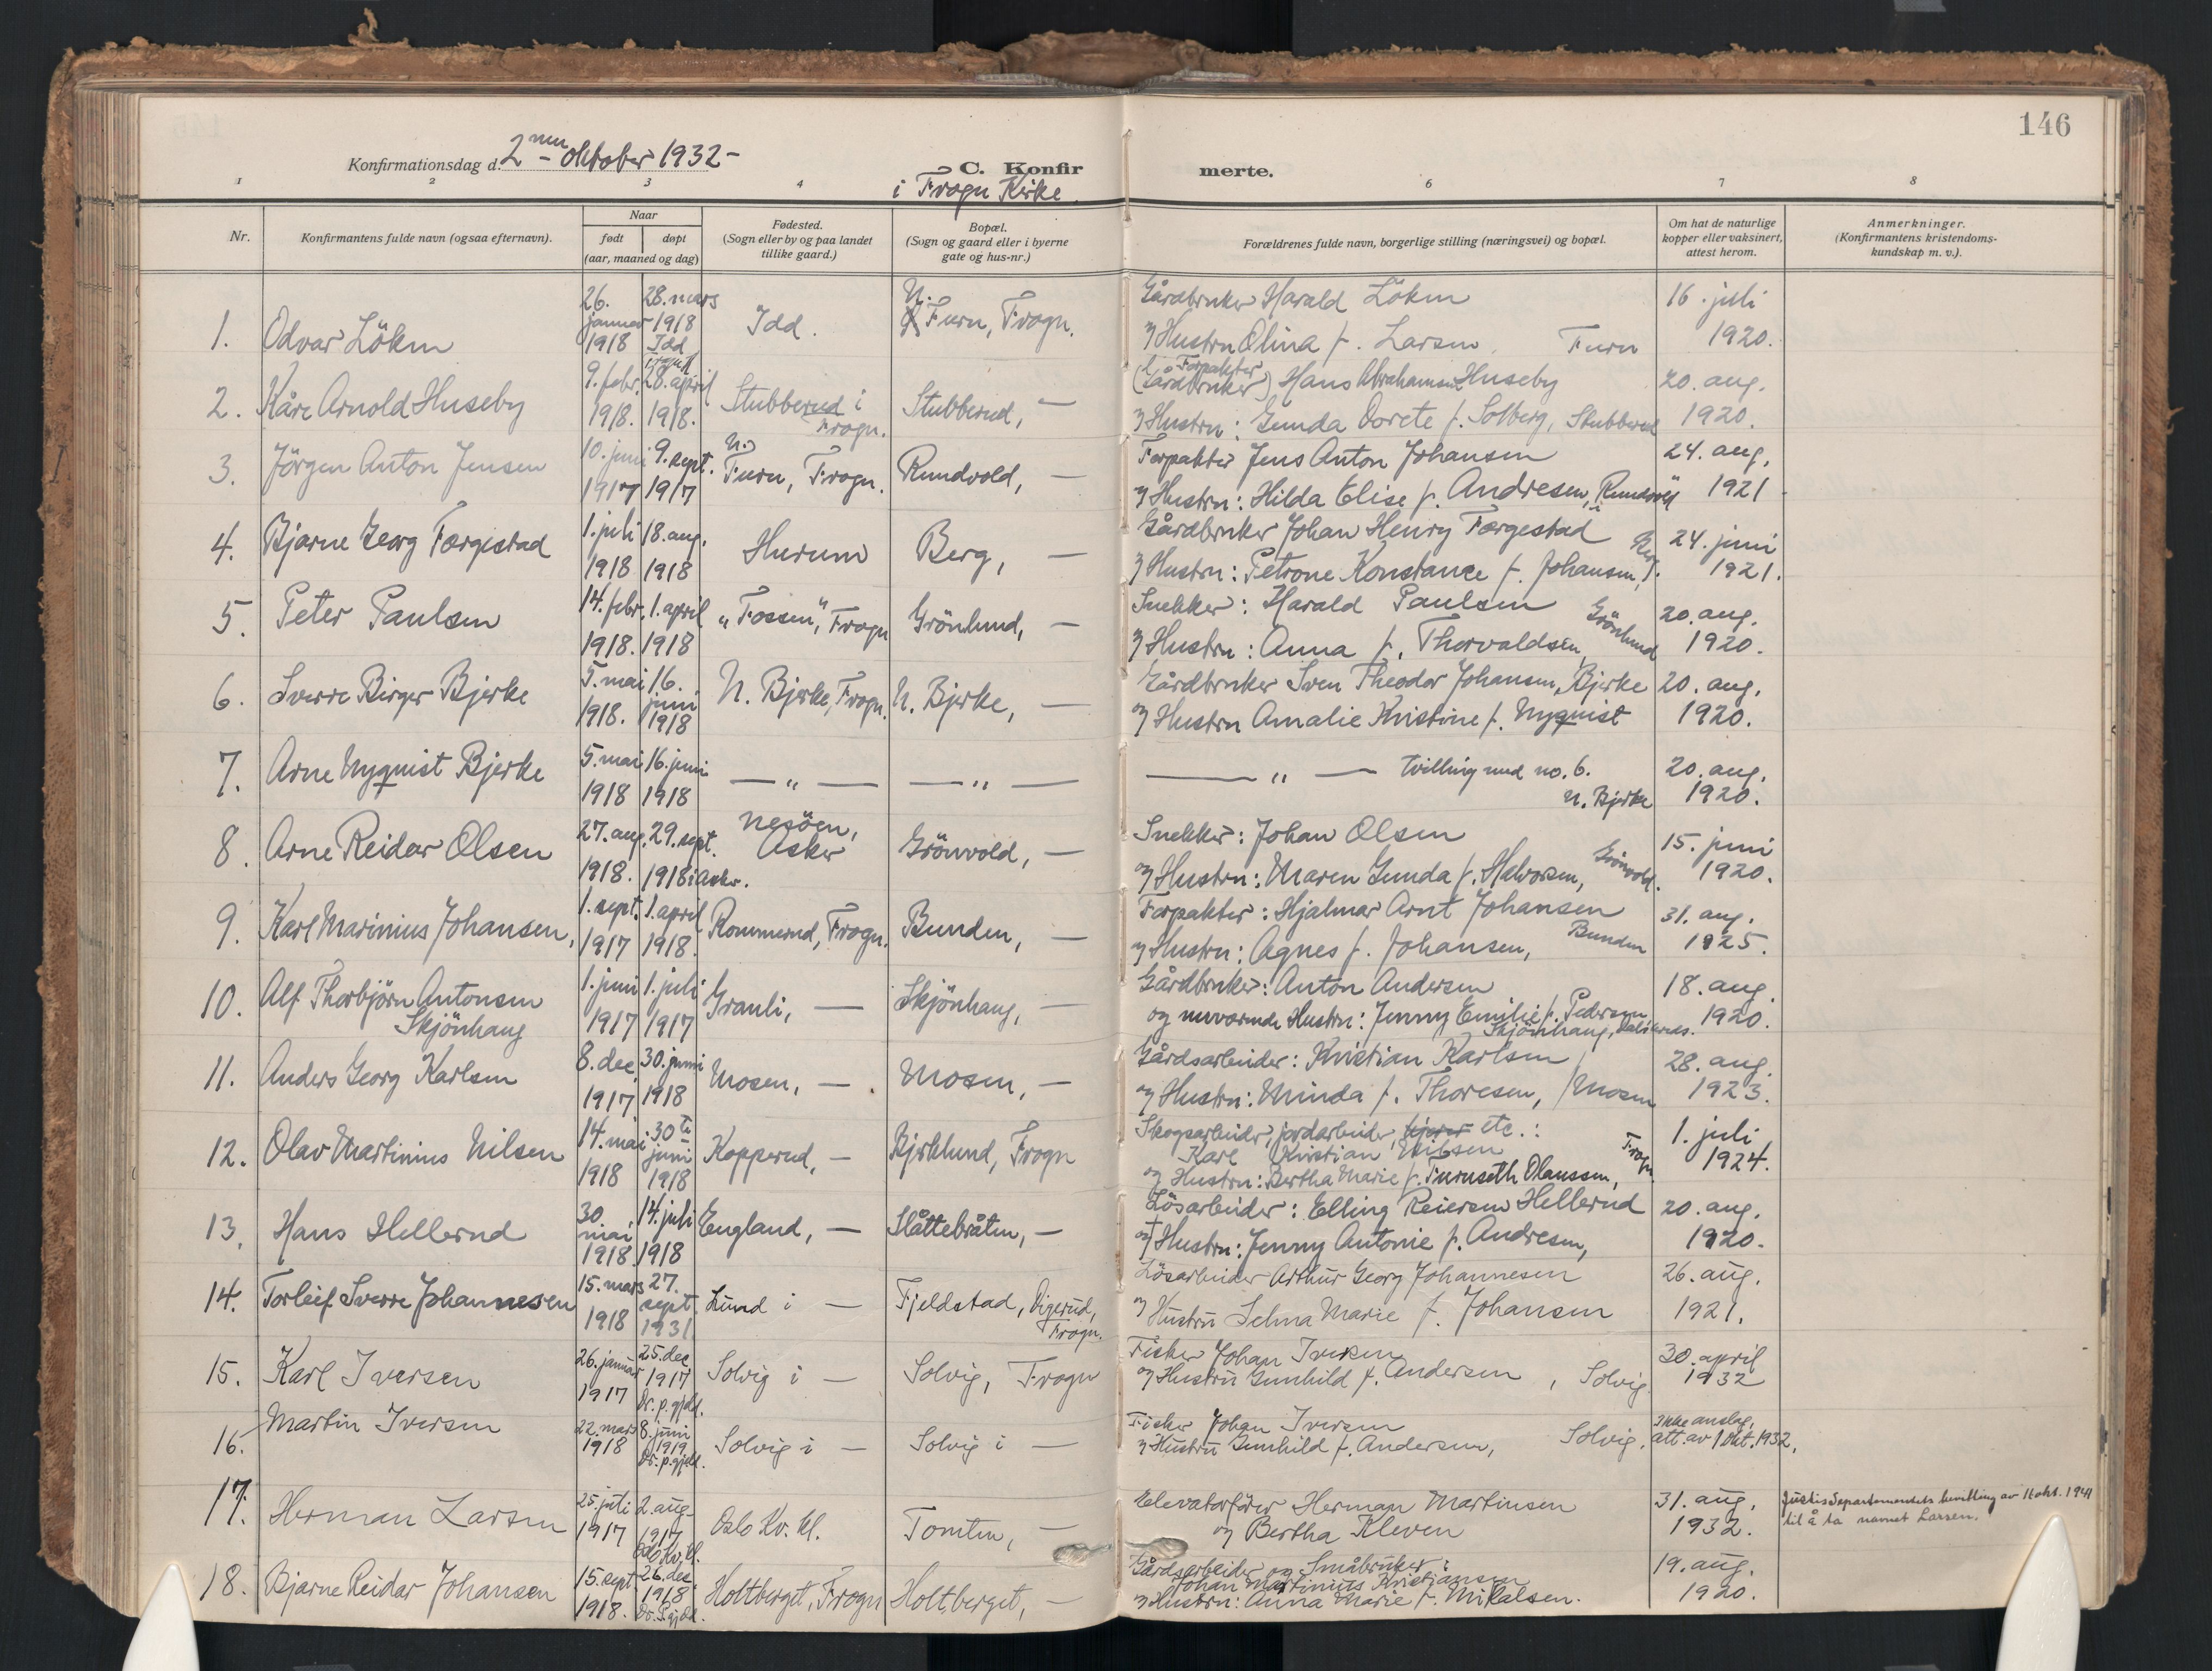 146
Konfirmationsdag d. 2nen oktober 1932 -
C. Konfir merte.
i Frogn Kirke.
1 2 3 4 6 7 8
Nr.
Konfirmantens fulde navn (ogsaa efternavn).
Naar
født
døpt
(aar, maaned og dag)
Fødested.
(Sogn eller by og paa landet
tillike gaard.)
Bopæl.
(Sogn og gaard eller i byerne
gate og hus-nr.)
Forældrenes fulde navn, borgerlige stilling (næringsvei) og bopæl.
Om hat de naturlige
kopper eller vaksinert,
attest herom.
Anmerkninger.
(Konfirmantens kristendoms-
kundskap m. v.).
1. Odvar Löken
26. januar 1918
28. mars 1918 Idd
Idd.
N. Furu, Frogn.
Gårdbruker Harald Löken
og Hustru Olina f. Larsen, Furu
16. juli 1920.
2. Kåre Arnold Huseby
9. febr. 1918.
28. april 1918.
Stubberud i Frogn.
Stubberud, —
(Gårdbruker) Forpakter Hans Abrahamsen Huseby
og Hustru: Gunda Dorete f. Solberg, Stubberud
20. aug. 1920.
3. Jörgen Anton Jensen
10. juni 1917
9. sept. 1917
N. Furu, Frogn.
Rundvold, —
Forpakter Jens Anton Johansen
og Hustru: Hilda Elise f. Andresen, Rundvold
24. aug. 1921
4. Bjarne Georg Færgestad
1. juli 1918
18. aug. 1918
Hurum
Berg, —
Gårdbruker Johan Henry Færgestad
og Hustru: Petrone Konstance f. Johansen, Berg.
24. juni 1921.
5. Peter Paulsen
14. febr. 1918.
1. april 1918
"Fossen", Frogn
Grönlund, —
Snekker: Harald Paulsen
og Hustru: Anna f. Thorvaldsen, Grönlund
20. aug. 1920.
6. Sverre Birger Bjerke
5. mai 1918.
16. juni 1918
N. Bjerke, Frogn.
N. Bjerke, —
Gårdbruker Sven Theodor Johansen, Bjerke
og Hustru Amalie Kristine f. Nyquist
20. aug. 1920.
7. Arne Nyquist Bjerke
5. mai 1918
16. juni 1918
— " —
— " —
— " — tvilling med no. 6.
N. Bjerke
20. aug. 1920.
8. Arne Reidar Olsen
27. aug. 1918.
29. sept. 1918 i Asker.
Nesöen, Asker
Grönvold, —
Snekker: Johan Olsen
og Hustru: Maren Gunda f. Halvorsen, Grönvold.
15. juni 1920.
9. Karl Marinius Johansen,
1. sept. 1917
1. april 1918.
Rommerud, Frogn.
Bunden, —
Forpakter: Hjalmar Arnt Johansen
og Hustru: Agnes f. Johansen, Bunden
31. aug. 1925.
10. Alf Thorbjörn Antonsen
Skjönhaug
1. juni 1917
1. juli 1917
Granli, —
Skjönhaug, —
Gårdbruker: Anton Andersen
og nuværende Hustru: Jenny Emilie f. Pedersen
Skjönhaug,
18. aug. 1920.
11. Anders Georg Karlsen
8. dec. 1917
30. juni 1918
Mosen, —
Mosen, —
Gårdsarbeider: Kristian Karlsen
og Hustru: Minda f. Thoresen, Mosen
28. aug. 1923.
12. Olav Martinius Nilsen
14. mai 1918
30te juni 1918
Kopperud, —
Bjerklund, Frogn
Skogsarbeider, jordarbeider, etc.:
Karl Kristian Nilsen
og Hustru: Bertha Marie f. Furuseth Olaussen, Frogn
1. juli 1924.
13. Hans Hellerud
30. mai 1918
14. juli 1918
England, —
Slåttebråten, —
Lösarbeider: Elling Reiersen Hellerud
og Hustru: Jenny Antonie f. Andresen,
20. aug. 1920.
14. Torleif Sverre Johannesen
15. mars 1918
27. sept 1931
Lund i —
Fjeldstad, Digerud, Frogn.
Lösarbeider Arthur Georg Johannesen
og Hustru Selma Marie f. Johansen
26. aug. 1921.
15. Karl Iversen
26. januar 1917
25. dec 1917 Dr. p. gjeld.
Solvig i —
Solvig, Frogn
Fisker Johan Iversen
og Hustru Gunhild f. Andersen, Solvig.
30. april 1932
16. Martin Iversen
22. mars 1918
8. juni 1919. Dr. p. gjeld.
Solvig i —
Solvig i —
Fisker Johan Iversen
og Hustru Gunhild f. Andersen, Solvig.
ikke anslag, att. av 1 okt. 1932.
17. Herman Larsen
25. juli 1917
2. aug. 1917 Oslo Kv. kl.
Oslo Kv. kl.
Tomten, —
Elevatorförer Herman Martinsen
og Bertha Kleven
31. aug. 1932.
Justisdepartementets bevilling av 11 okt. 1941
til å ta navnet Larsen.
18. Bjarne Reidar Johansen
15. sept 1918.
26. dec. 1918 Dr. P. gjeld.
Holtberget, Frogn
Holtberget, —
Gårdsarbeider og Småbruker:
Johan Martinius Kristiansen
og Hustru: Anna Marie f. Mikalsen.
19. aug. 1920.